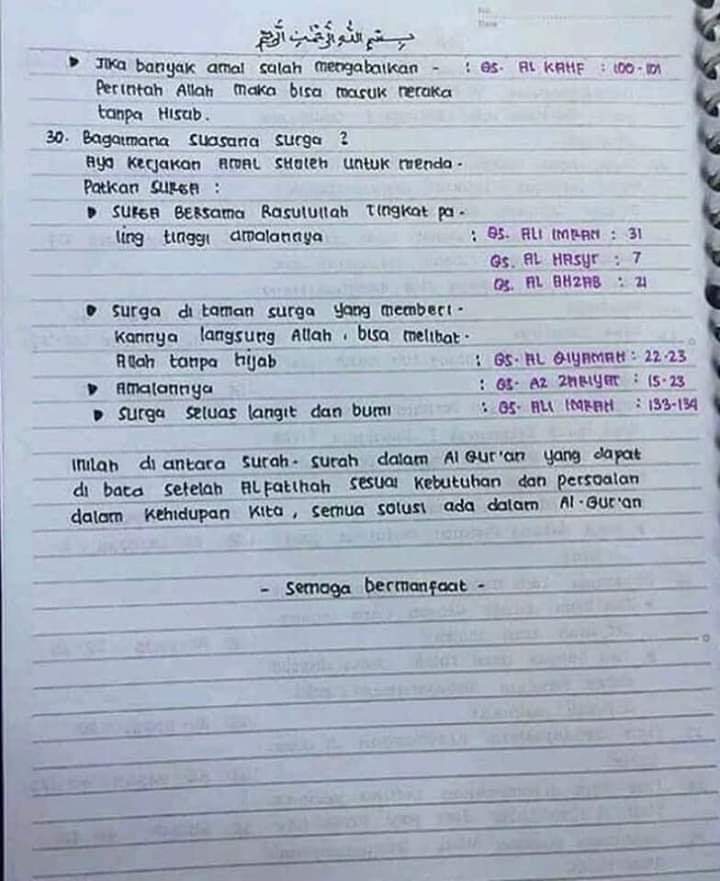 No.
Date
بسم الله الرحمن الرحيم
Jika banyak amal salah mengabaikan - : QS. AL KAHF : 100-101
Perintah Allah maka bisa masuk neraka
tanpa Hisab.
30. Bagaimana suasana surga ?
Aya Kerjakan AMAL SHOLEH untuk menda-
Patkan SURGA :
SURGA BERSama Rasulullah Tingkat pa-
ling tinggi amalannya : QS. ALI IMRAN : 31
QS. AL HASyr : 7
QS. AL AHZAB : 21
surga di taman surga yang memberi-
kannya langsung Allah, bisa melihat-
Allah tanpa hijab : QS. AL QIYAMAH : 22-23
Amalannya : QS. AZ ZARIYAT : 15-23
surga seluas langit dan bumi : QS. ALI IMRAN : 133-134
inilah di antara surah-surah dalam Al Qur'an yang dapat
di baca setelah ALFatihah sesuai kebutuhan dan persoalan
dalam kehidupan kita, semua solusi ada dalam Al-Qur'an
- Semoga bermanfaat -